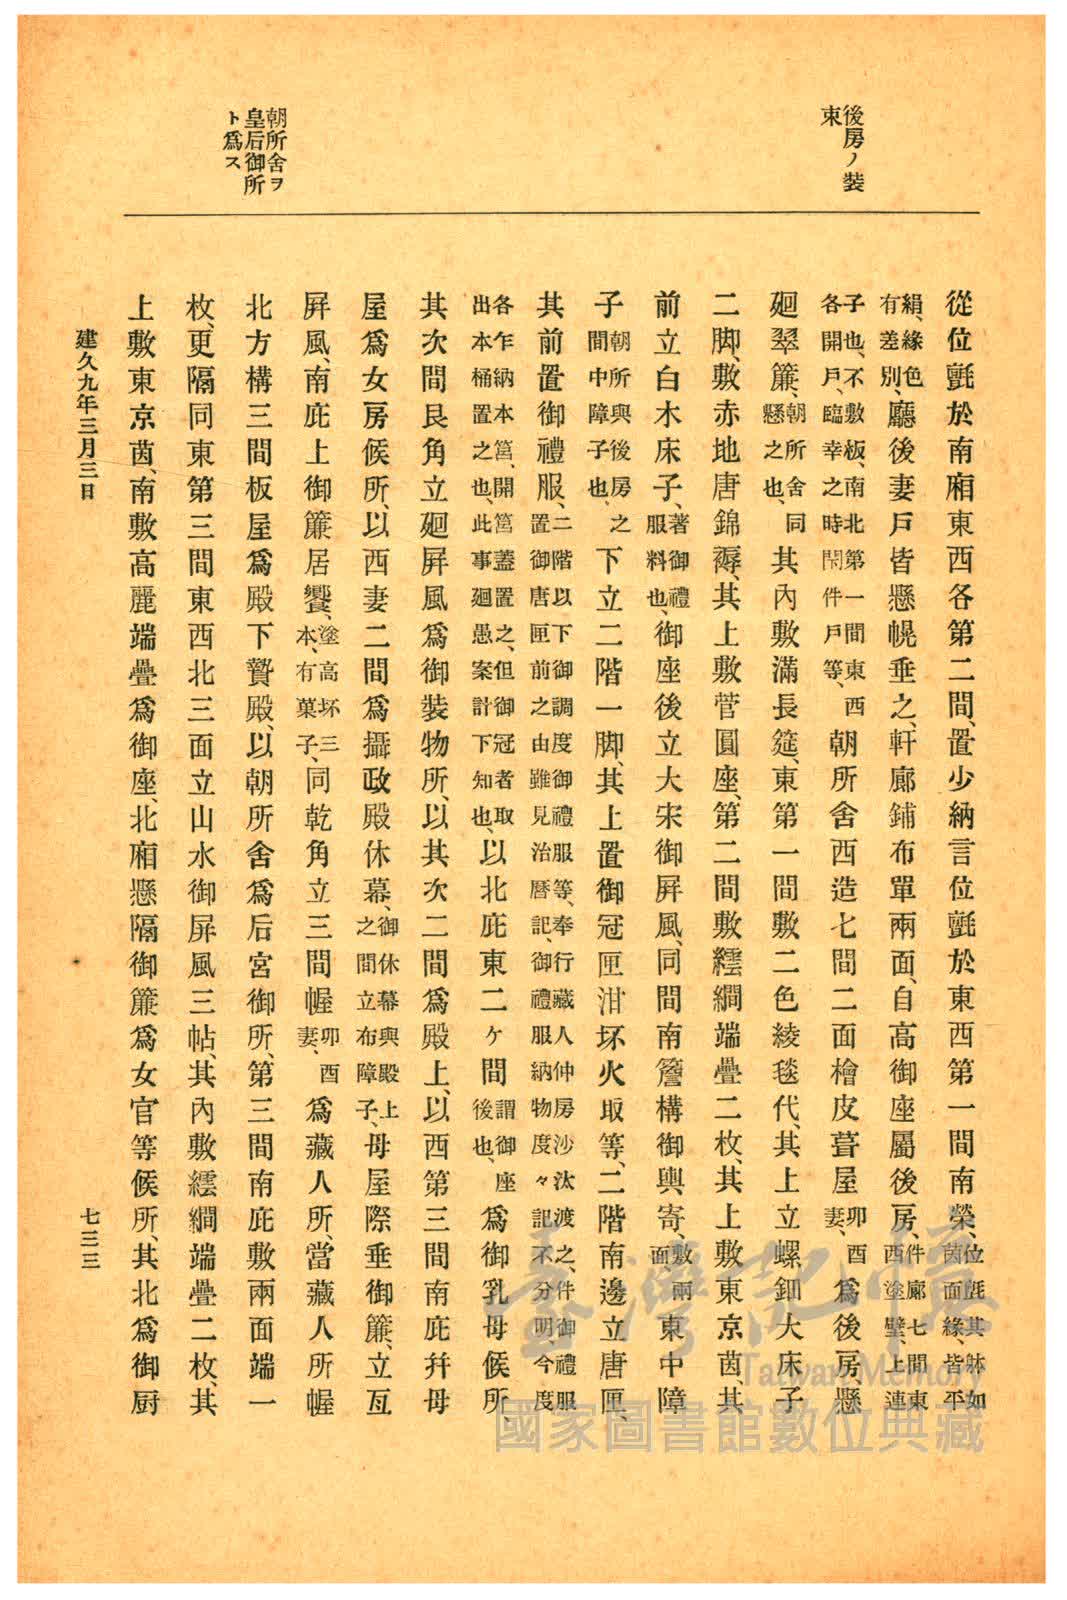 後房ノ裝
束
朝所舍ヲ
皇后御所
ト爲ス
從位氈於南廂東西各第二間、置少納言位氈於東西第一間南榮、位氈其躰如
茵面緣、皆平
絹、緣色
有差別、廳後妻戶皆懸幌垂之、軒廊鋪布單兩面、自高御座屬後房、件廊七間東
西塗壁、上連
子也、不敷板、南北第一間東西
各開戶、臨幸之時閇件戶等、朝所舍西造七間二面檜皮葺屋卯酉
妻、爲後房、懸
廻翠簾、朝所舍同
懸之也、其內敷滿長筵、東第一間敷二色綾毯代、其上立螺鈿大床子
二脚、敷赤地唐錦褥、其上敷菅圓座、第二間敷繧繝端疊二枚、其上敷東京茵、其
前立白木床子、著御禮
服料也、御座後立大宋御屛風、同間南簷構御輿寄、敷兩
面、東中障
子朝所與後房之
間中障子也、下立二階一脚、其上置御冠匣泔坏火取等、二階南邊立唐匣、
其前置御禮服、二階以下御調度御禮服等、奉行藏人仲房沙汰渡之、件御禮服
置御唐匣前之由雖見治曆記、御禮服納物度々記不分明、今度
各乍納本筥、開筥蓋置之、但御冠者取
出本桶置之也、此事廻愚案計下知也、以北庇東二ケ間謂御座
後也、爲御乳母候所、
其次間艮角立廻屛風爲御裝物所、以其次二間爲殿上、以西第三間南庇幷母
屋爲女房候所、以西妻二間爲攝政殿休幕、御休幕與殿上
之間立布障子、母屋際垂御簾、立亙
屛風、南庇上御簾居饗、塗高坏三
本、有菓子、同乾角立三間幄卯酉
妻、爲藏人所、當藏人所幄
北方構三間板屋爲殿下贄殿、以朝所舍爲后宮御所、第三間南庇敷兩面端一
枚、更隔同東第三間東西北三面立山水御屛風三帖、其內敷繧繝端疊二枚、其
上敷東京茵、南敷高麗端疊爲御座、北廂懸隔御簾爲女官等候所、其北爲御厨
建久九年三月三日
七三三
臺灣記憶
Taiwan Memory
國家圖書館數位典藏